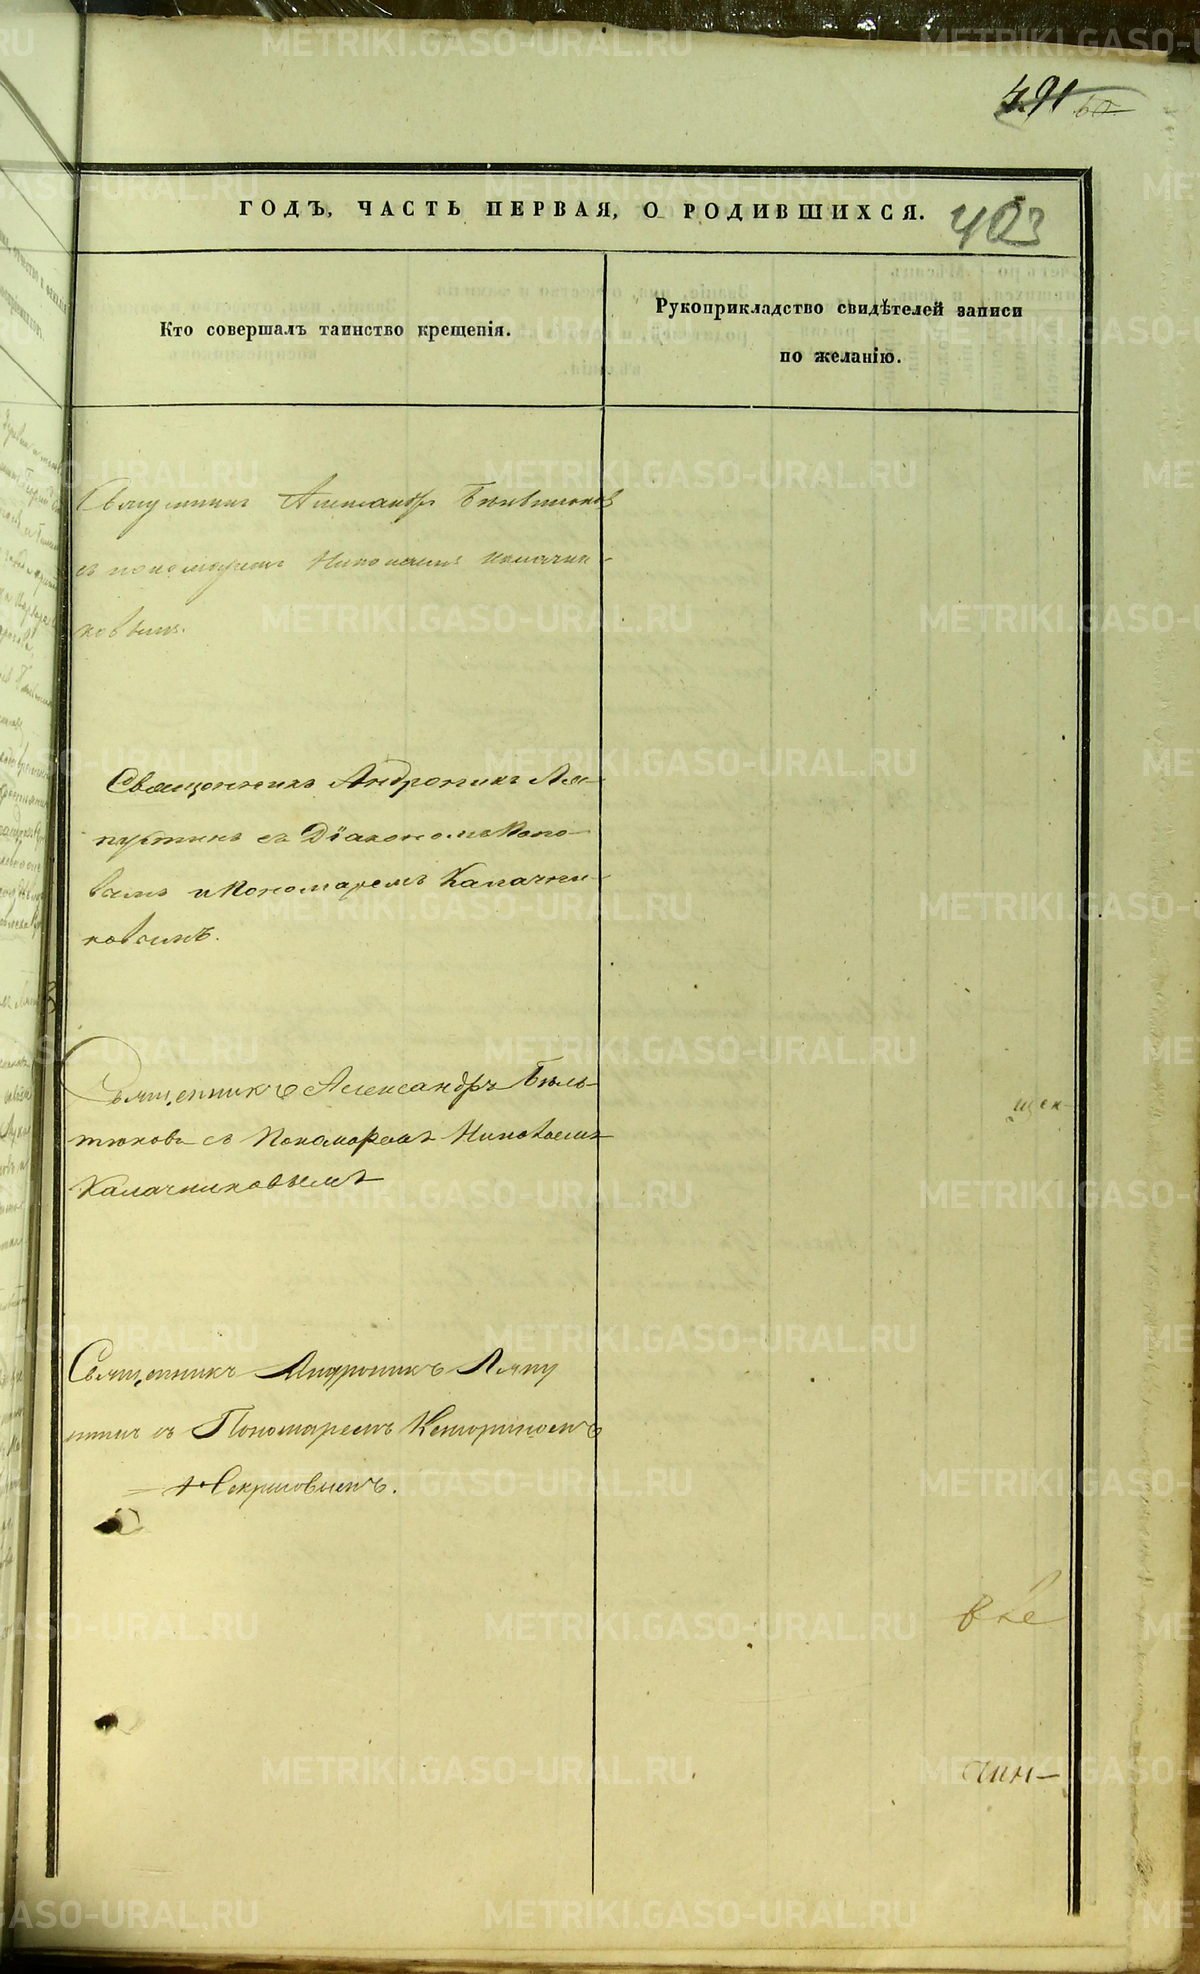 491 60
ГОДЪ, ЧАСТЬ ПЕРВАЯ, О РОДИВШИХСЯ.
403
Кто совершалъ таинство крещенія.
Рукоприкладство свидѣтелей записи
по желанію.
Священникъ Александръ Бельтюковъ
съ пономаремъ Николаемъ Калачни-
ковымъ.
Священникъ Андроникъ Ля-
пустинъ съ Діакономъ Попо-
вымъ и Пономаремъ Калачни-
ковымъ.
Священникъ Александръ Бель-
тюковъ съ Пономаремъ Николаемъ
Калачниковымъ
Священникъ Андроникъ Ляпу
стинъ съ Пономаремъ
Некрасовымъ.
щен-
вне
чин-
METRIKI.GASO-URAL.RU